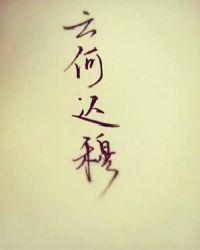 云何迟穆